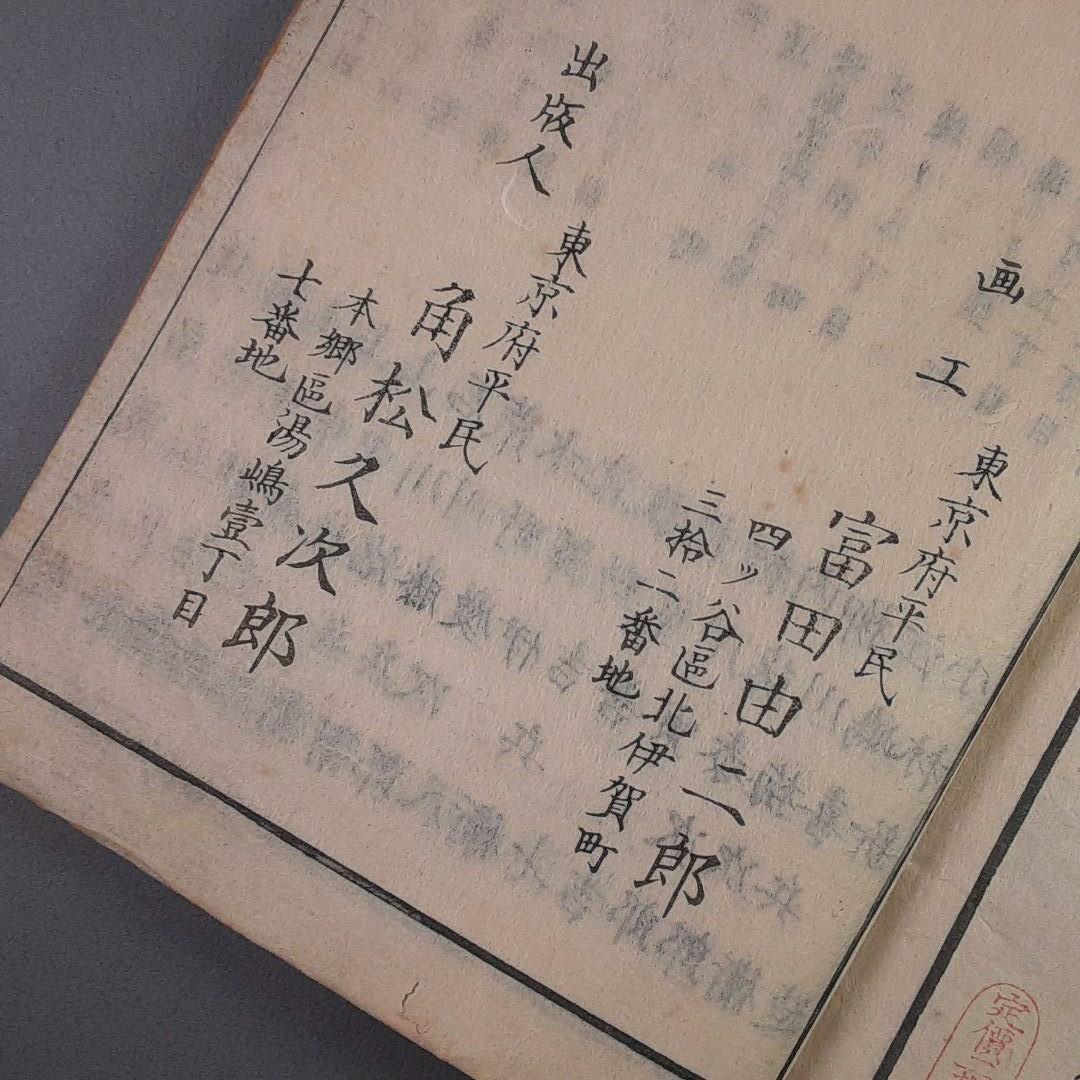 画工
東京府平民
富田由二郎
四ッ谷區北伊賀町
三拾二番地
出版人
東京府平民
角松久次郎
本郷區湯嶋壹丁目
七番地
定價